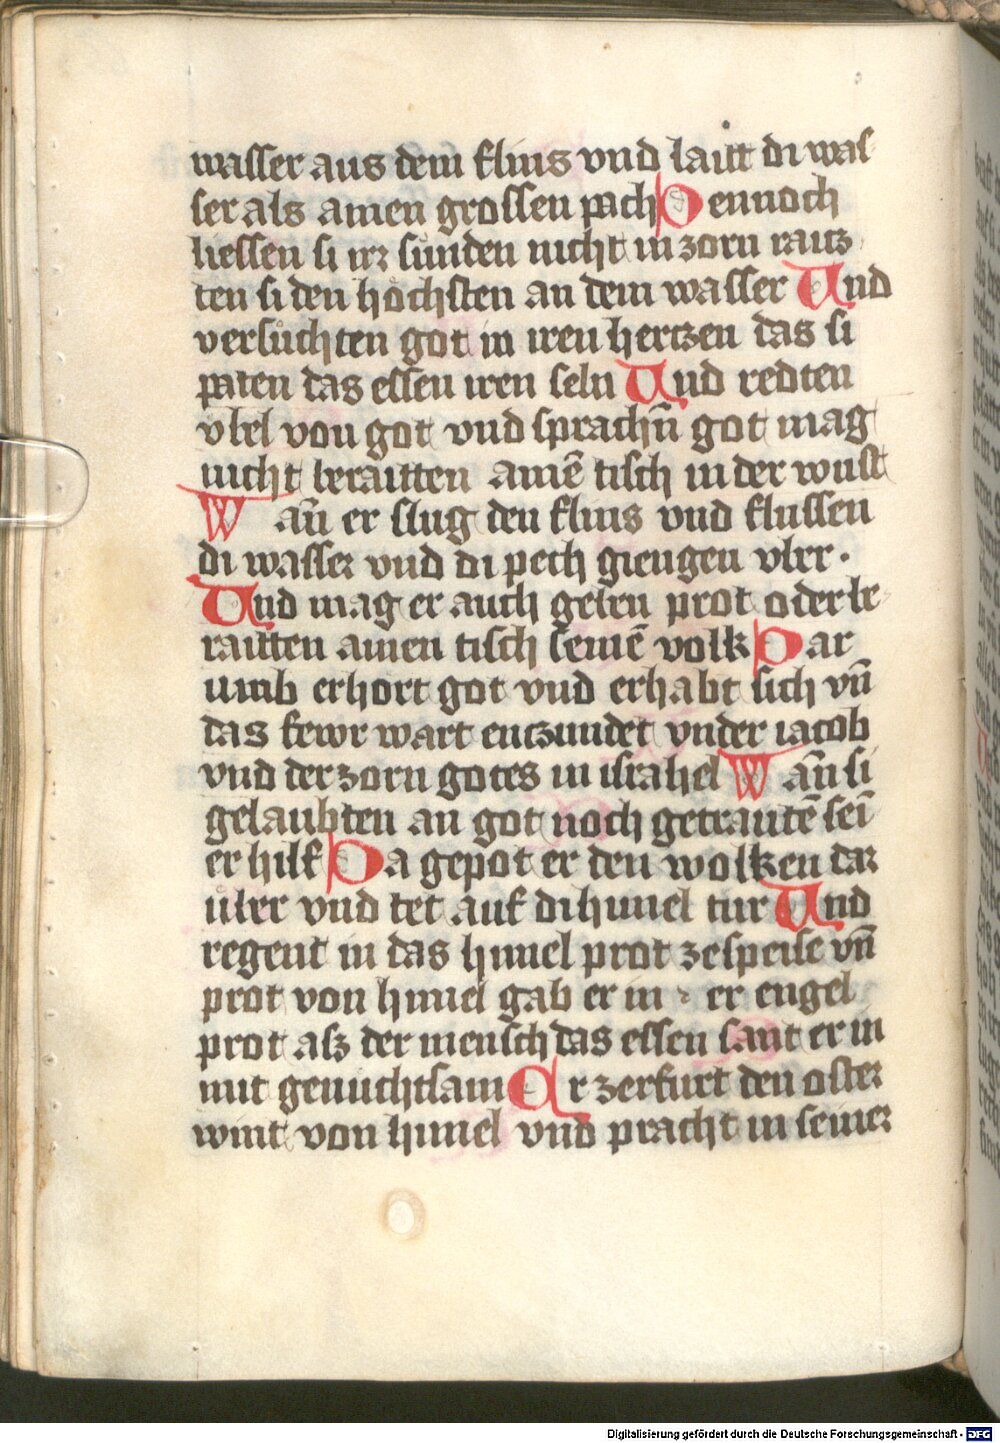 wasser aus dem flins vnd laitt di was
ser als ainen grossen pach Dennoch
liessen si irr sunden nicht in zorn raitz
ten si den hochsten an dem wasser Und
versuchten got in iren hertzen das si
paten das essen iren seln Und redten
vbel von got vnd sprachn̄ got mag
nicht beraitten ainē tisch in der wust
Wan̄ er slug den flins vnd flussen
di wasser vnd di pech giengen vber.
Und mag er auch geben prot oder be
raitten ainen tisch seinē volk Dar
umb erhort got vnd erhabt sich vn̄
das fewr wart entzundet vnder iacob
vnd der zorn gotes in israhel Wan̄ si
gelaubten an got noch getrautē sei
er hilf Da gepot er den wolken dar
uber vnd tet auf di himel tur Und
regent in das himel prot ze speise vn̄
prot von himel gab er in er engel
prot asz der mensch das essen sant er in
mit genuchtsam Er zerfurt den oster
wint von himel vnd pracht in seiner
Digitalisierung gefördert durch die Deutsche Forschungsgemeinschaft - DFG